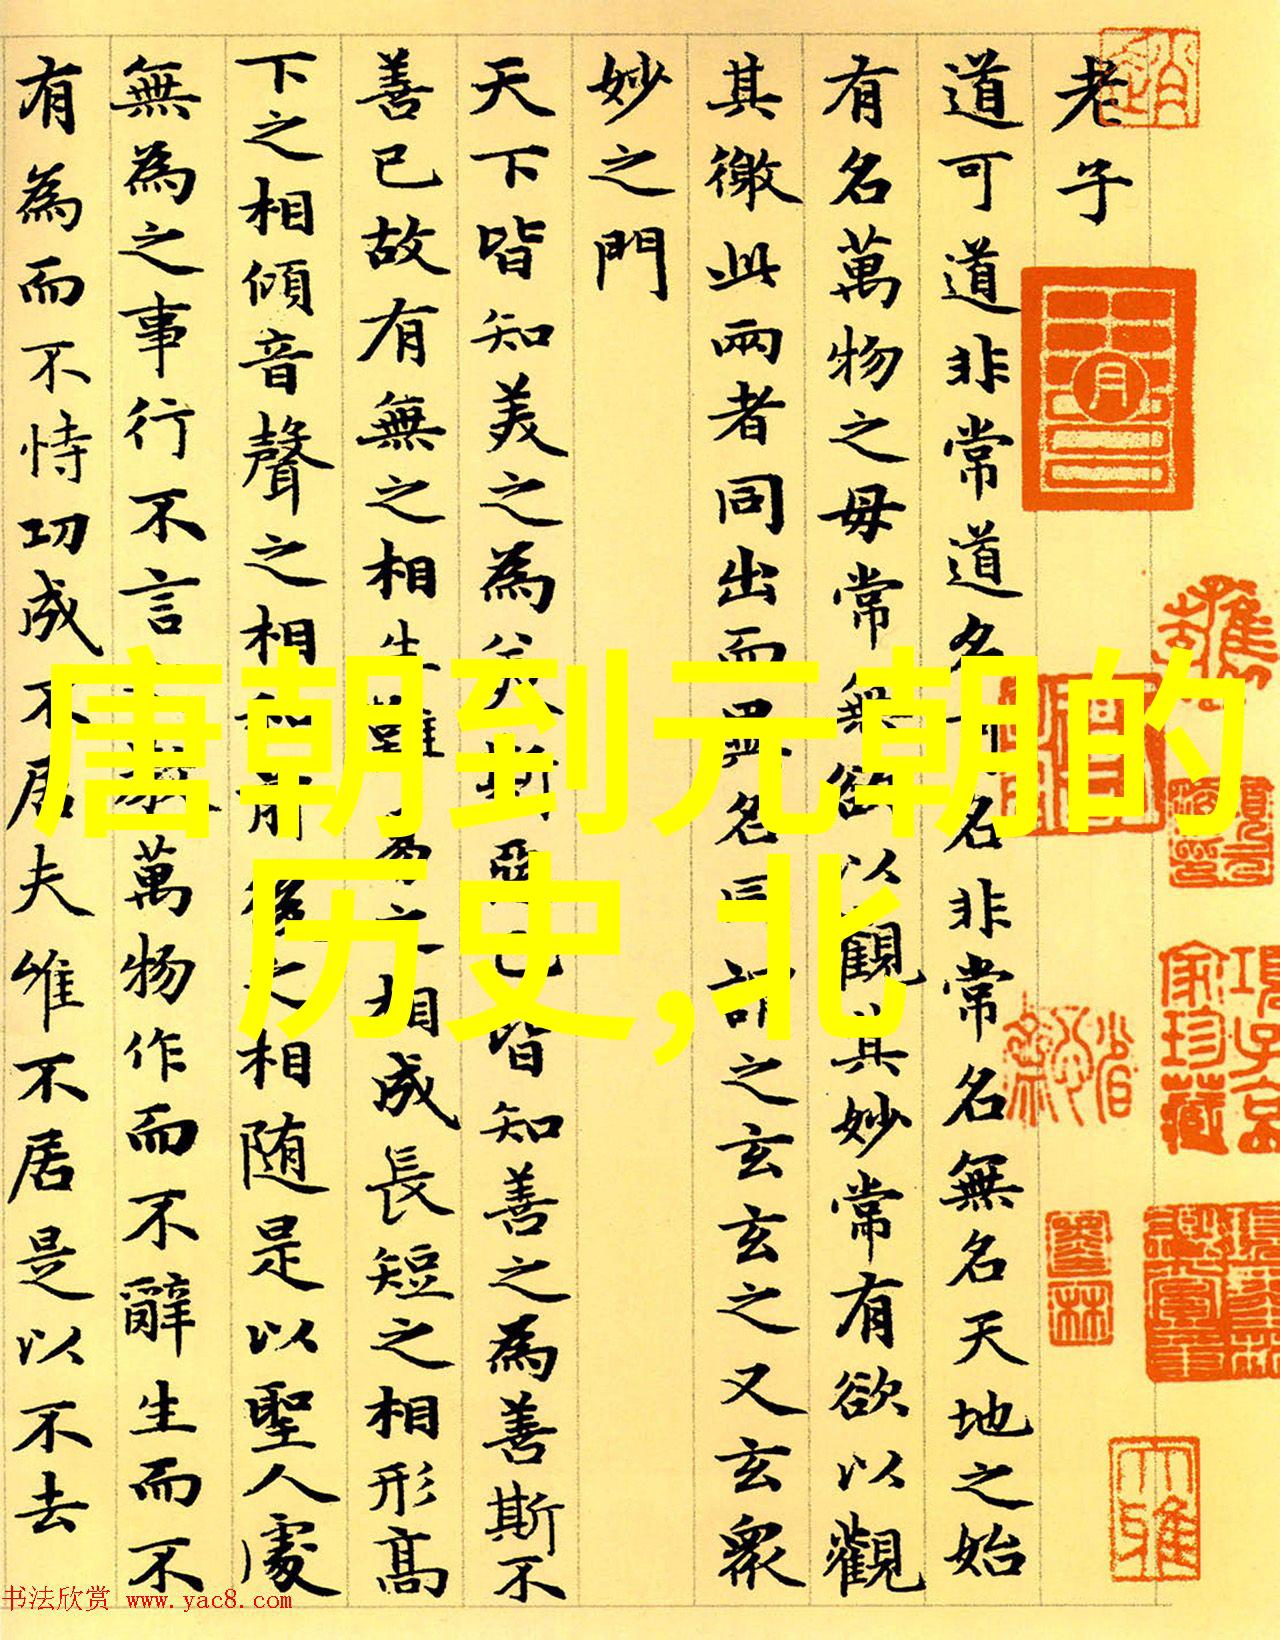 老子
道可道非常道名可名非常名無名天地之始
有名萬物之毋常無欲以觀其妙常有欲以觀
其徼此兩者同出而異名同謂之玄玄之又玄衆
妙之門
天下皆知美之為美斯惡已皆知善之為善斯不
善已故有無之相生難易之相成長短之相形高
下之相傾音聲之相和前後之相随是以聖人處
無為之事行不言之教萬物作而不辭生而不
有為而不恃功成不居夫唯不居是以不去
唐朝到元朝的
历史,北
項子京
家珍藏
书法欣赏 www.yac8.com